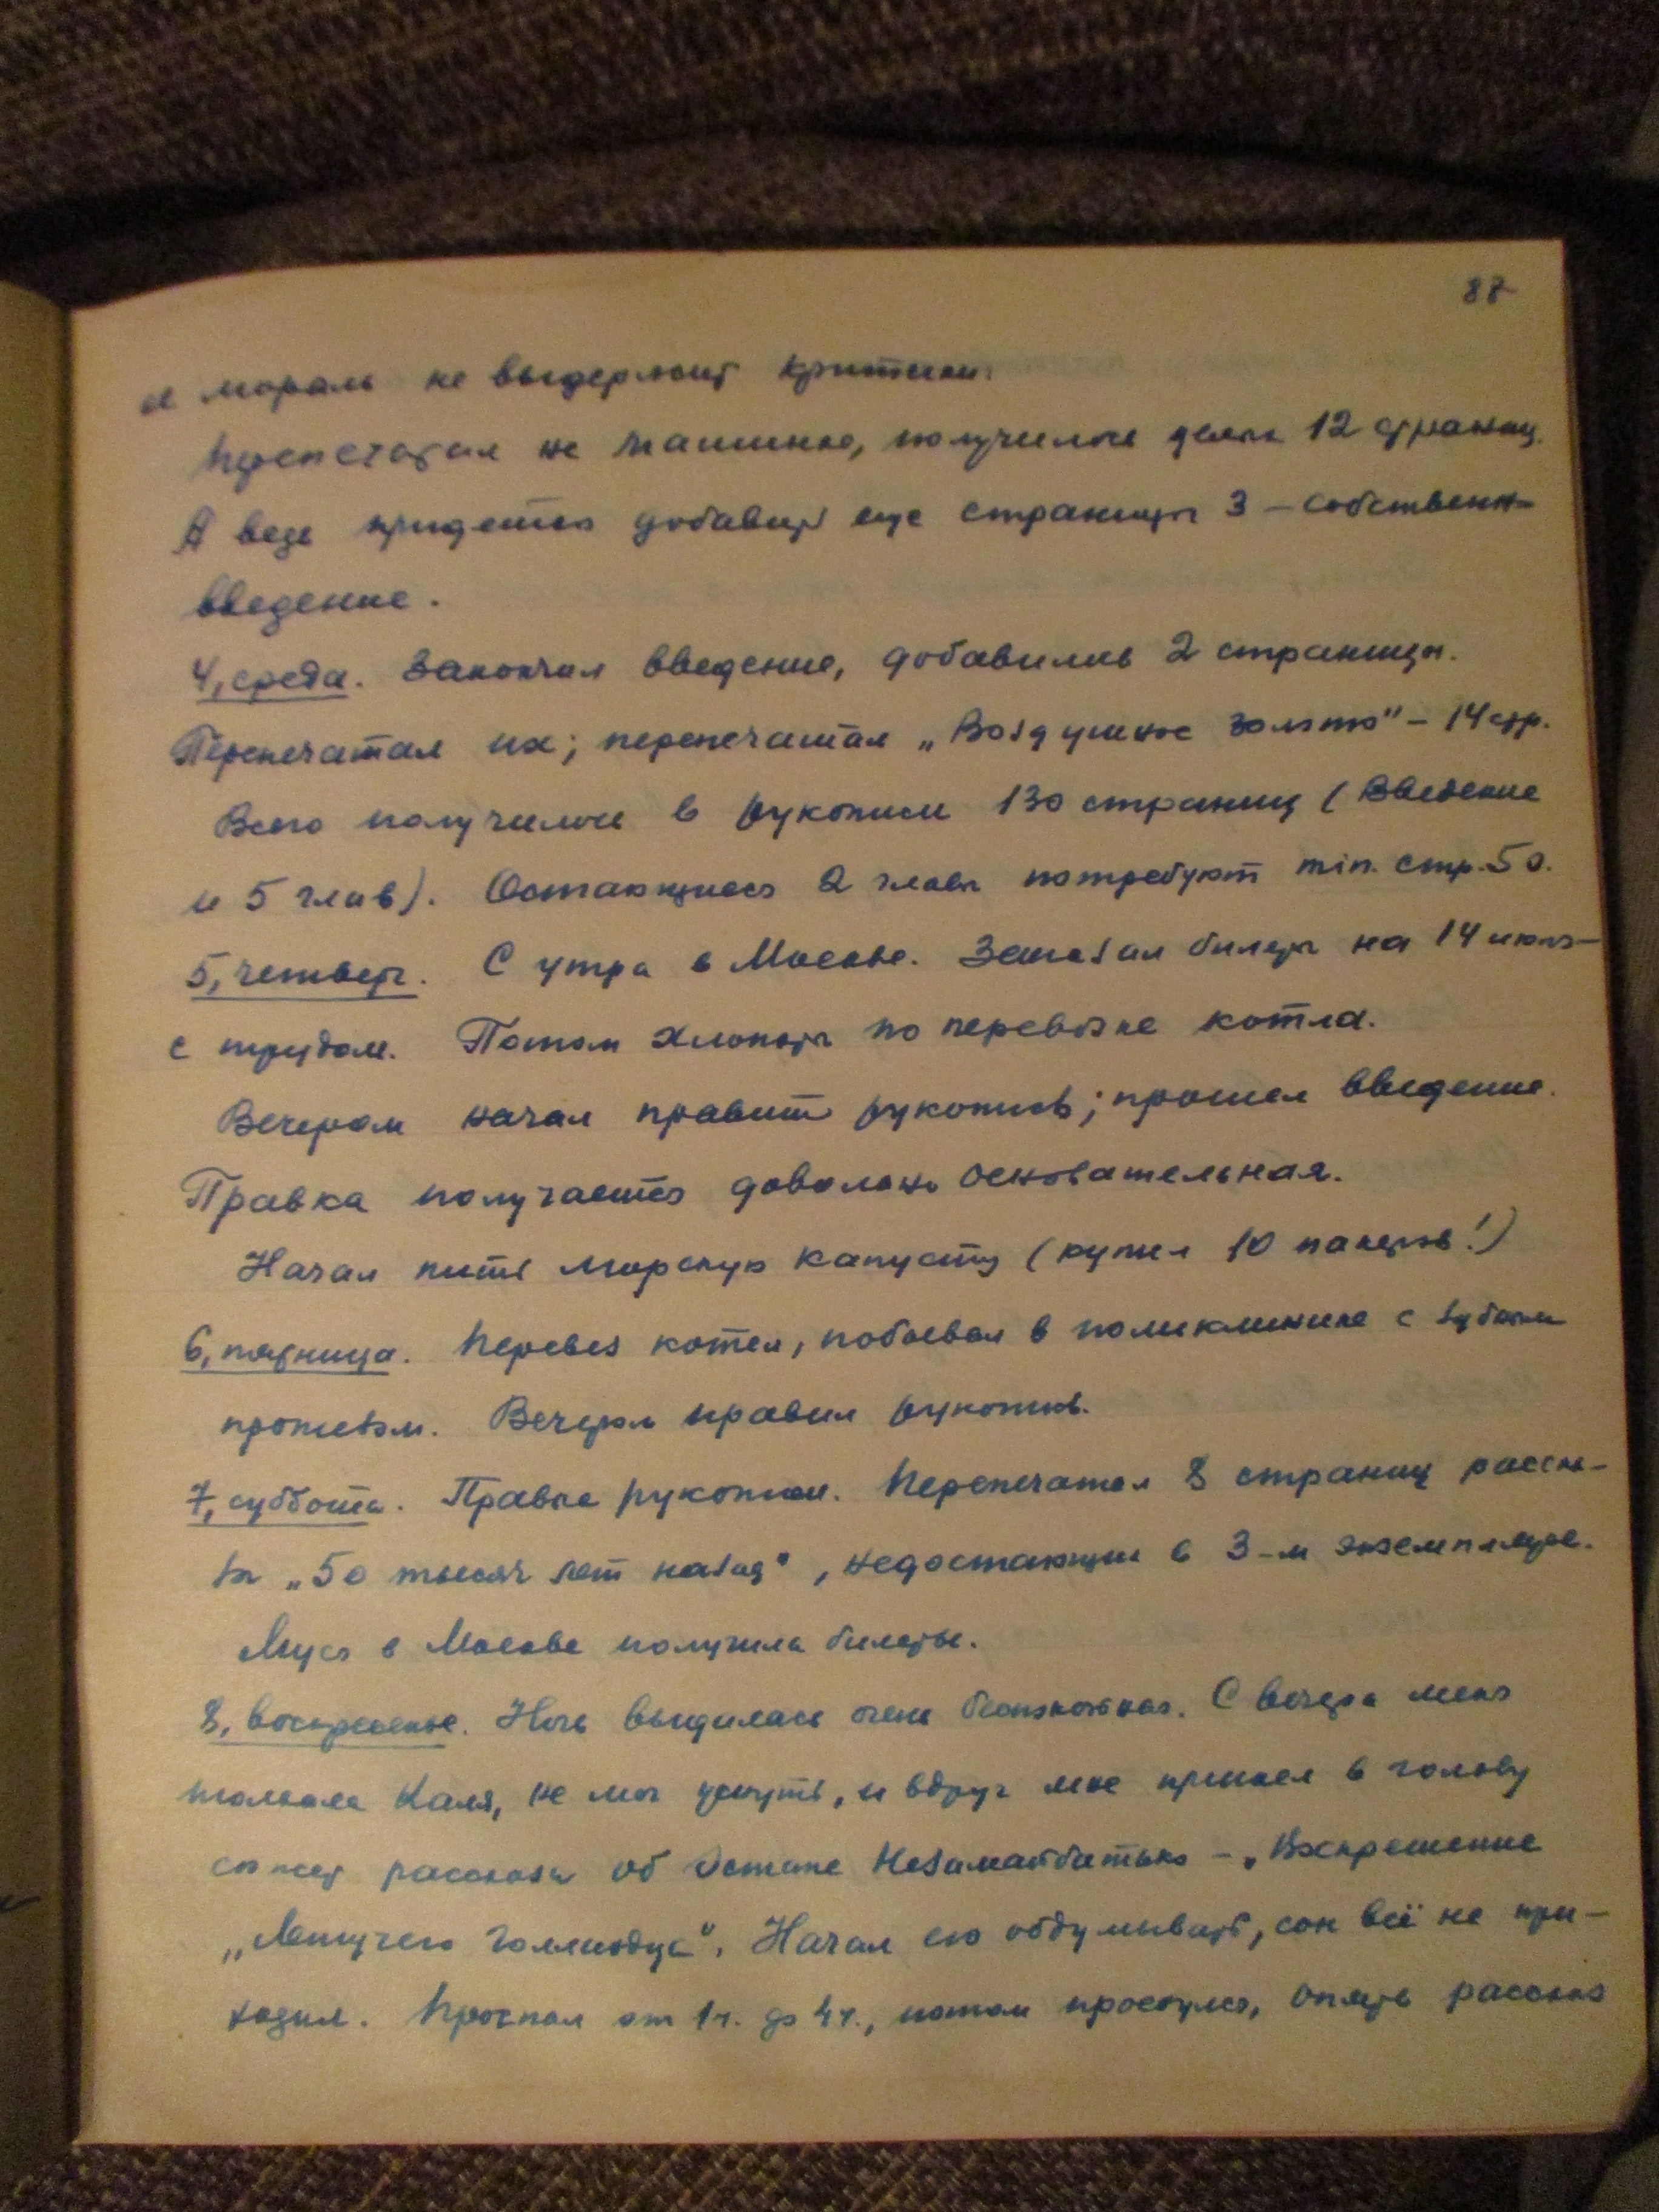 87
и мораль не выдержит критики.
Препечатал на машинке, получилось целых 12 страниц.
А ведь придется добавить еще страницы 3 – собственн-
введение.
4, среда. Закончил введение, добавились 2 страницы.
Перепечатал их; перепечатал „Воздушное золото" – 14 стр.
Всего получилось в рукописи 130 страниц (Введение
и 5 глав). Остающиеся 2 главы потребуют min. стр. 50.
5, четверг. С утра в Москве. Заказал билеты на 14 июля –
с трудом. Потом хлопоты по перевозке котла.
Вечером начал править рукопись; прошел введение.
Правка получается довольно основательная.
Начал пить морскую капусту (купил 10 пакетов!)
6, пятница. Перевез котел, побывал в поликлинике с зубным
протезом. Вечером правил рукопись.
7, суббота. Правка рукописи. Перепечатал 8 страниц расска-
за „50 тысяч лет назад", недостающие в 3-м экземпляре.
Муся в Москве получила билеты.
8, воскресенье. Ночь выдалась очень беспокойная. С вечера меня
толкала Каля, не мог уснуть, и вдруг мне пришел в голову
сюжет рассказа об Остапе Незамайбатько – „Воскрешение
„Летучего Голландца". Начал его обдумывать, сон всё не при-
ходил. Проспал от 1 ч. до 4 ч., потом проснулся, опять рассказ